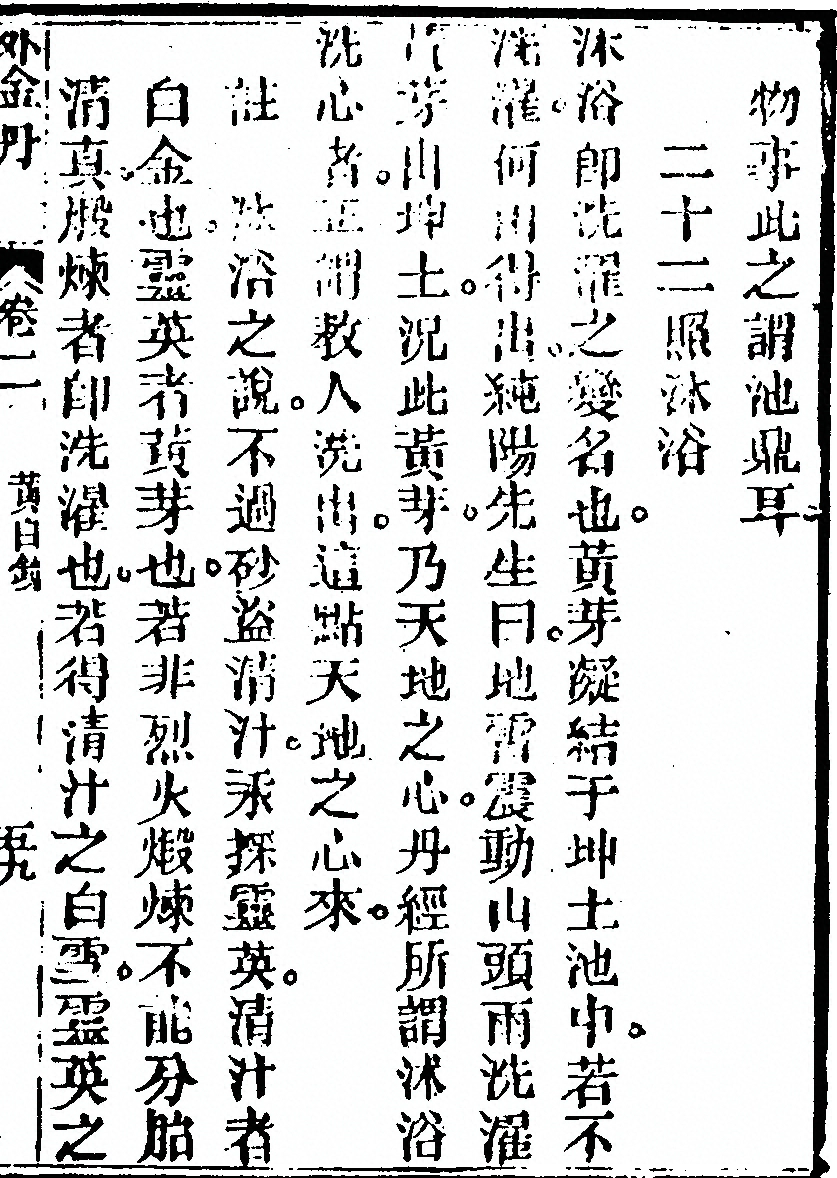 物事此之謂池鼎耳
二十二照沐浴
沐浴卽洗濯之變名也。黃芽凝結于坤土池中。若不
洗濯。何由得出。純陽先生曰。地雷震動山頭雨洗濯
黃芽出坤土。況此黃芽。乃天地之心。丹經所謂沐浴
洗心者。正謂教人洗出。這點天地之心來。
註 沐浴之說。不過砂盜清汁。汞採靈英。清汁者
白金也。靈英者黃芽也。若非烈火煅煉不能分胎
清真。煅煉者卽洗濯也。若得清汁之白雪。靈英之
外金丹 卷二 黃白鏡 五九